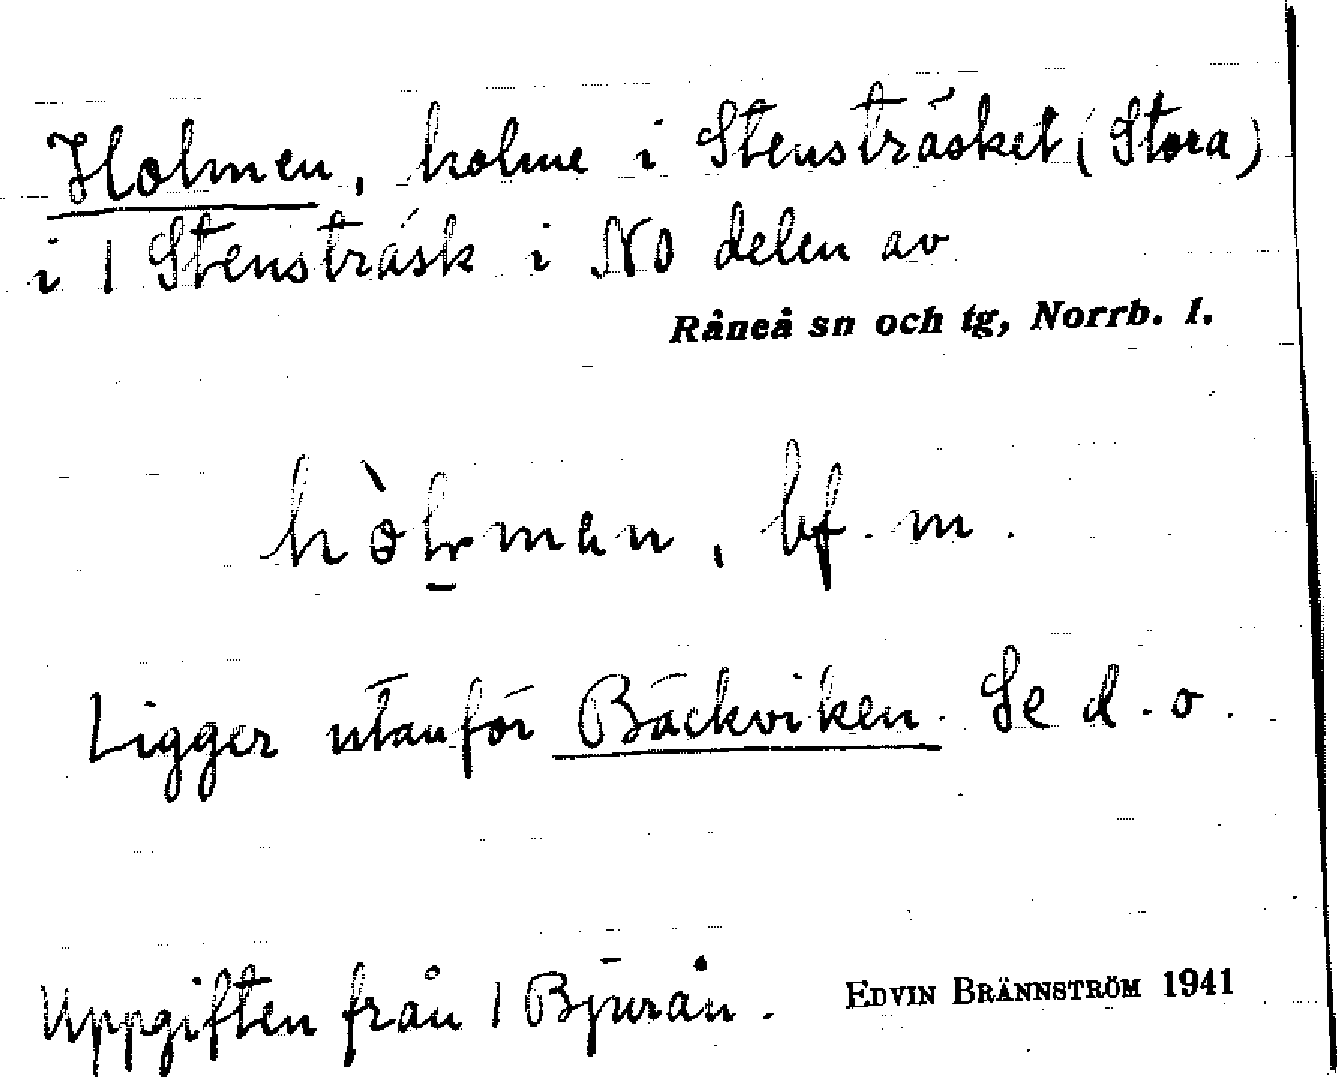 Holmen, holme i Stensträsket (Stora)
i 1 Stensträsk i NO delen av
Råneå sn och tg, Norrb. l.
bf. m.
Ligger utanför Bäckviken. Se d. o.
Uppgiften från 1 Bjurån.
EDVIN BRÄNNSTRÖM 1941